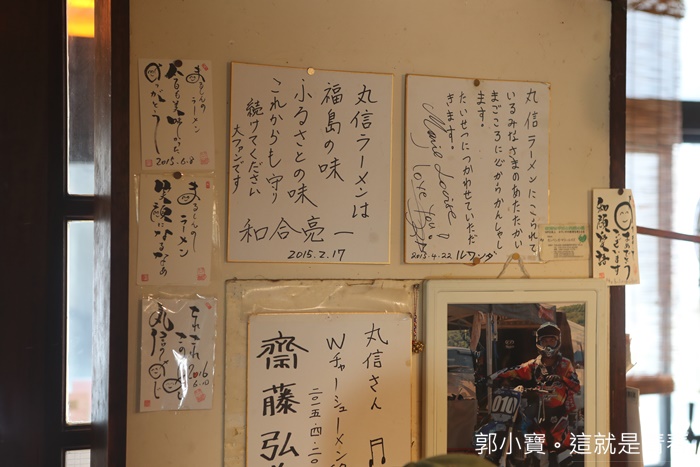 まるしんの
ラーメン
2015.6.8
丸信ラーメンは
福島の味
ふるさとの味
これからも守り
続けてください
大ファンです
和合亮一
2015.2.17
丸信ラーメンにこられて
いるみなさまのあたたかい
まごころに心からかんしゃし
ます。
たいせつにつかわせていただ
きます。
Marie Louise
Love you!
2015.4.22 ルワンダ
まるしんの
ラーメン
笑顔になるなあ
2016
丸信さん
Wチャーシューメン
二〇一五・四・二〇
齋藤弘
010
郭小寶。這就是